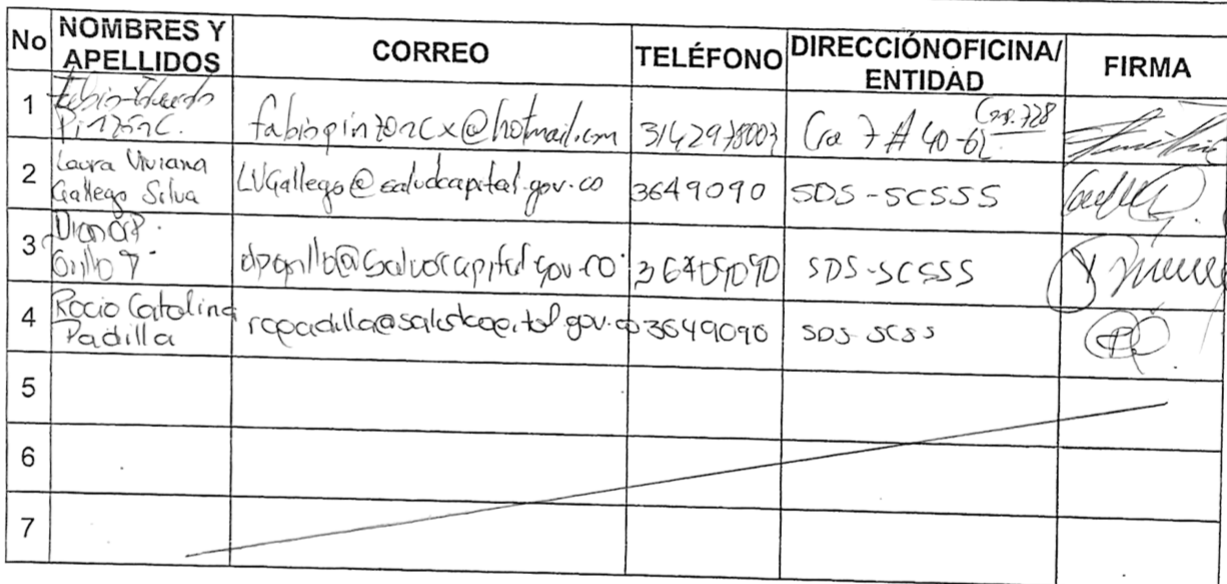 No NOMBRES Y APELLIDOS CORREO TELÉFONO DIRECCIÓNOFICINA/ ENTIDAD FIRMA
1 Fabio Eduardo
Pinzón C. fabiopinzoncx@hotmail.com 3142978003 Cra 7 # 40-62
2 Laura Viviana
Gallego Silva LVGallego@saludcapital.gov.co 3649090 SDS-SCSSS
3 Diana P.
Grillo 3649090 SDS-SCSSS
4 Rocio Catalina
Padilla rcpadilla@saludcapital.gov.co 3649090 SDS-SCSS
5
6
7